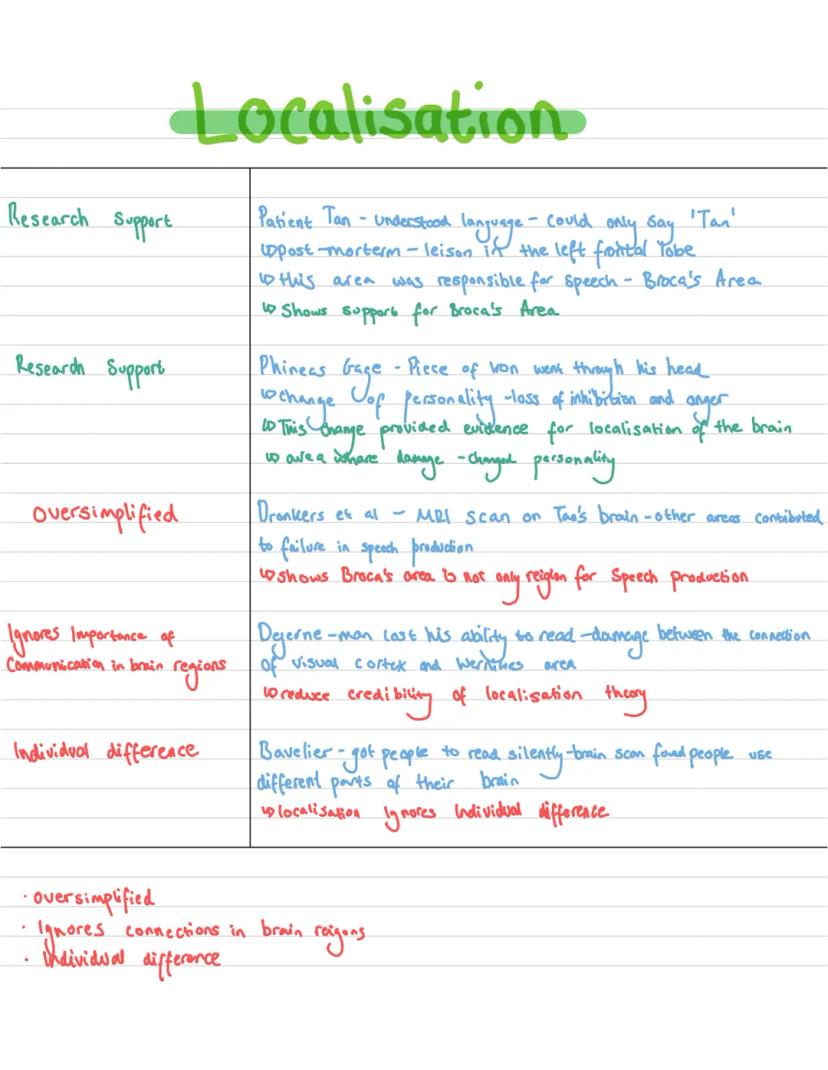 Localisation
Research Support
Patient Tan - understood language - could only say 'Tan'
↳ post-morterm - leison in the left frontal lobe
↳ this area was responsible for speech - Broca's Area
↳ Shows support for Broca's Area
Research Support
Phineas Gage - Piece of iron went through his head
↳ change of personality - loss of inhibition and anger
↳ This change provided evidence for localisation of the brain
↳ area where damage - changed personality
oversimplified
Dronkers et al - MRI scan on Tan's brain - other areas contributed
to failure in speech production
↳ shows Broca's area is not only reigion for speech production
Ignores Importance of
Communication in brain regions
Dejerne - man lost his ability to read - damage between the connection
of visual cortex and Wernikes area
↳ reduce credibility of localisation theory
Individual difference
Bavelier - got people to read silently - brain scan found people use
different parts of their brain
↳ localisation Ignores Individual difference
· oversimplified
· Ignores connections in brain reigons
· Individual difference